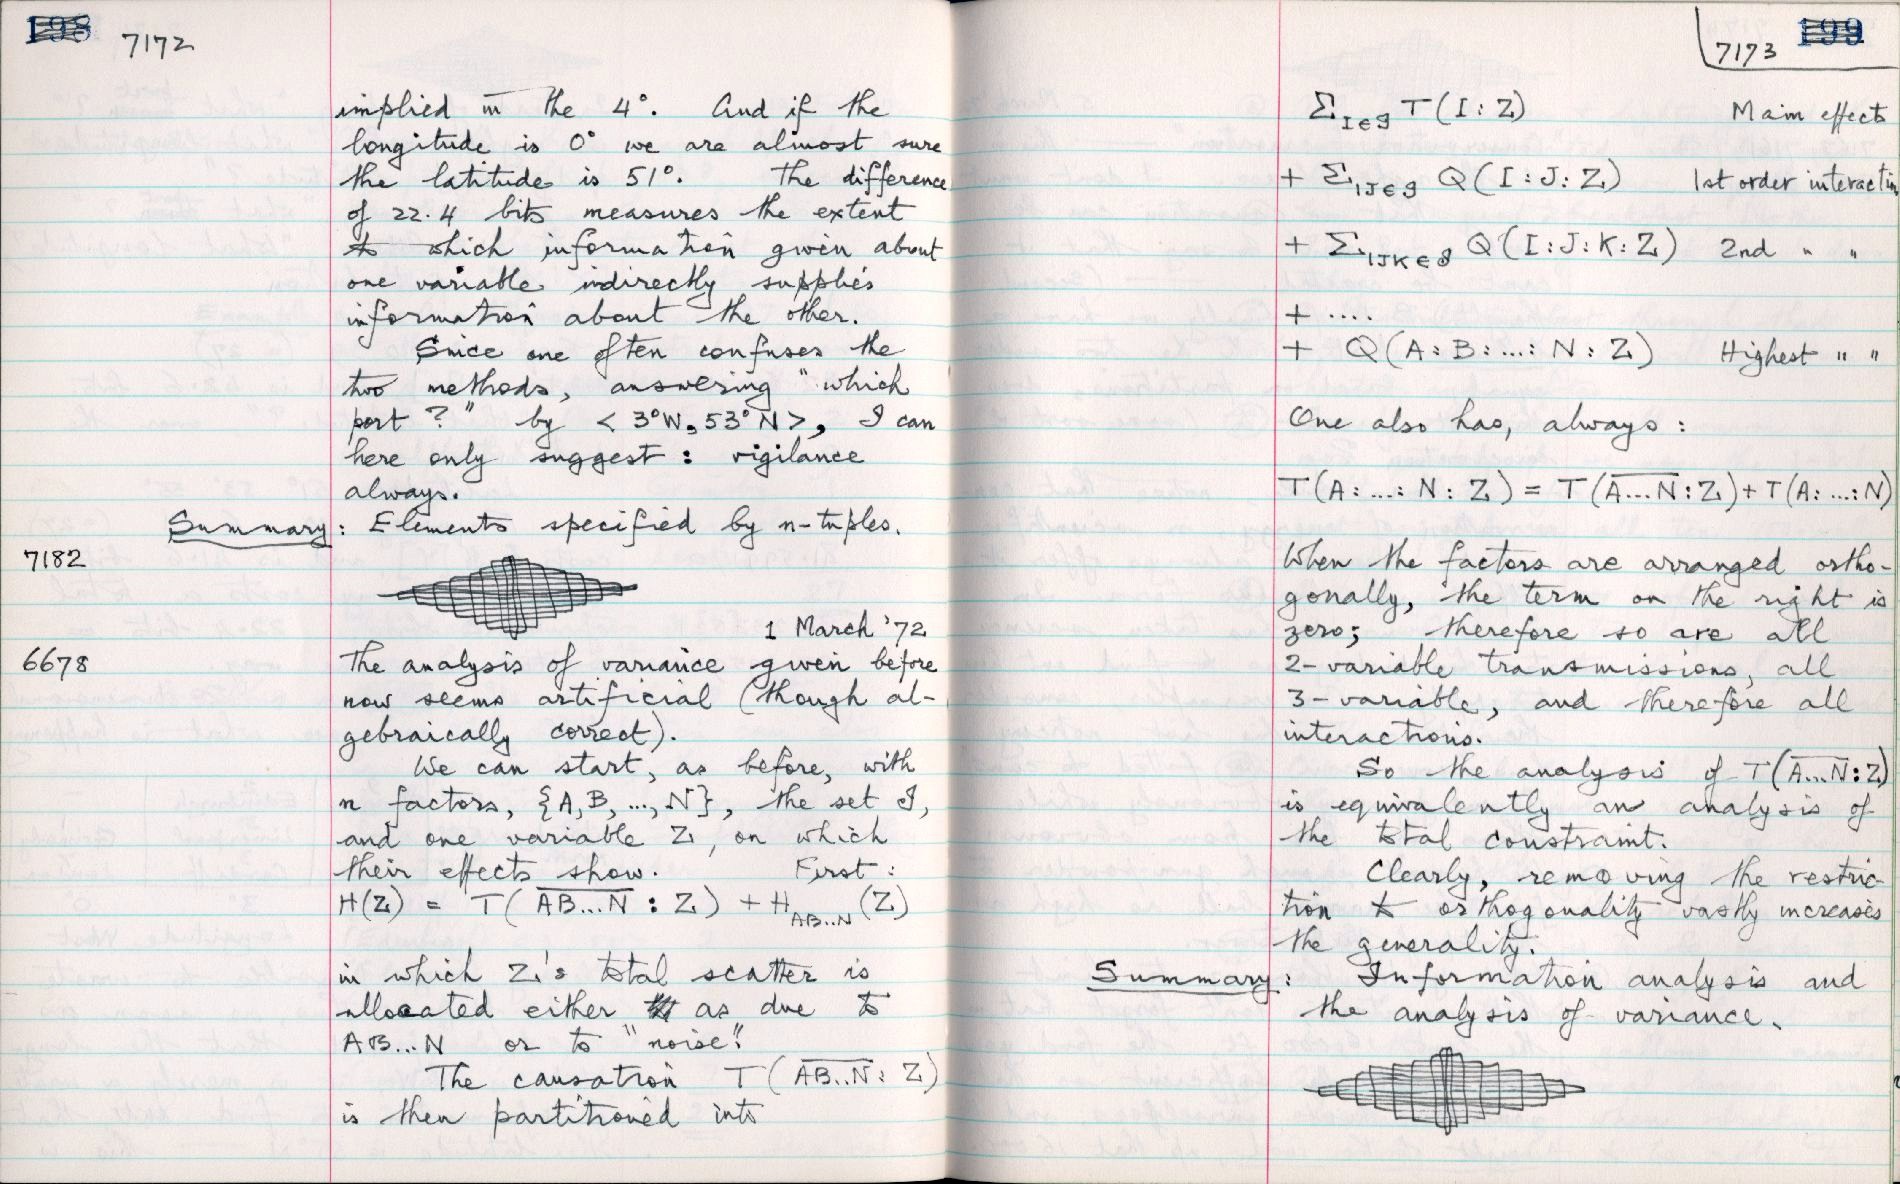 198 7172
implied in the 4°. And if the
longitude is 0° we are almost sure
the latitude is 51°. The difference
of 22.4 bits measures the extent
to which information given about
one variable indirectly supplies
information about the other.
Since one often confuses the
two methods, answering "which
port?" by <3°W, 53°N>, I can
here only suggest: vigilance
always.
Summary: Elements specified by n-tuples.
7182
1 March '72
6678 The analysis of variance given before
now seems artificial (though al-
gebraically correct).
We can start, as before, with
n factors, {A,B, ..., N}, the set I,
and one variable Z, on which
their effects show. First:
H(Z) = T(A̅B̅.̅.̅.̅N̅ : Z) + H_AB..N (Z)
in which Z's total scatter is
allocated either as due to
AB...N or to "noise".
The causation T(A̅B̅.̅.̅N̅ : Z)
is then partitioned into
7173 199
Σ_I∈I T(I : Z) Main effects
+ Σ_IJ∈I Q(I : J : Z) 1st order interaction
+ Σ_IJK∈I Q(I : J : K : Z) 2nd " "
+ ....
+ Q(A : B : ... : N : Z) Highest " "
One also has, always:
T(A : ... : N : Z) = T(A̅.̅.̅.̅N̅ : Z) + T(A : ... : N)
When the factors are arranged ortho-
gonally, the term on the right is
zero; therefore so are all
2-variable transmissions, all
3-variable, and therefore all
interactions.
So the analysis of T(A̅.̅.̅.̅N̅ : Z)
is equivalently an analysis of
the total constraint.
Clearly, removing the restric-
tion to orthogonality vastly increases
the generality.
Summary: Information analysis and
the analysis of variance.